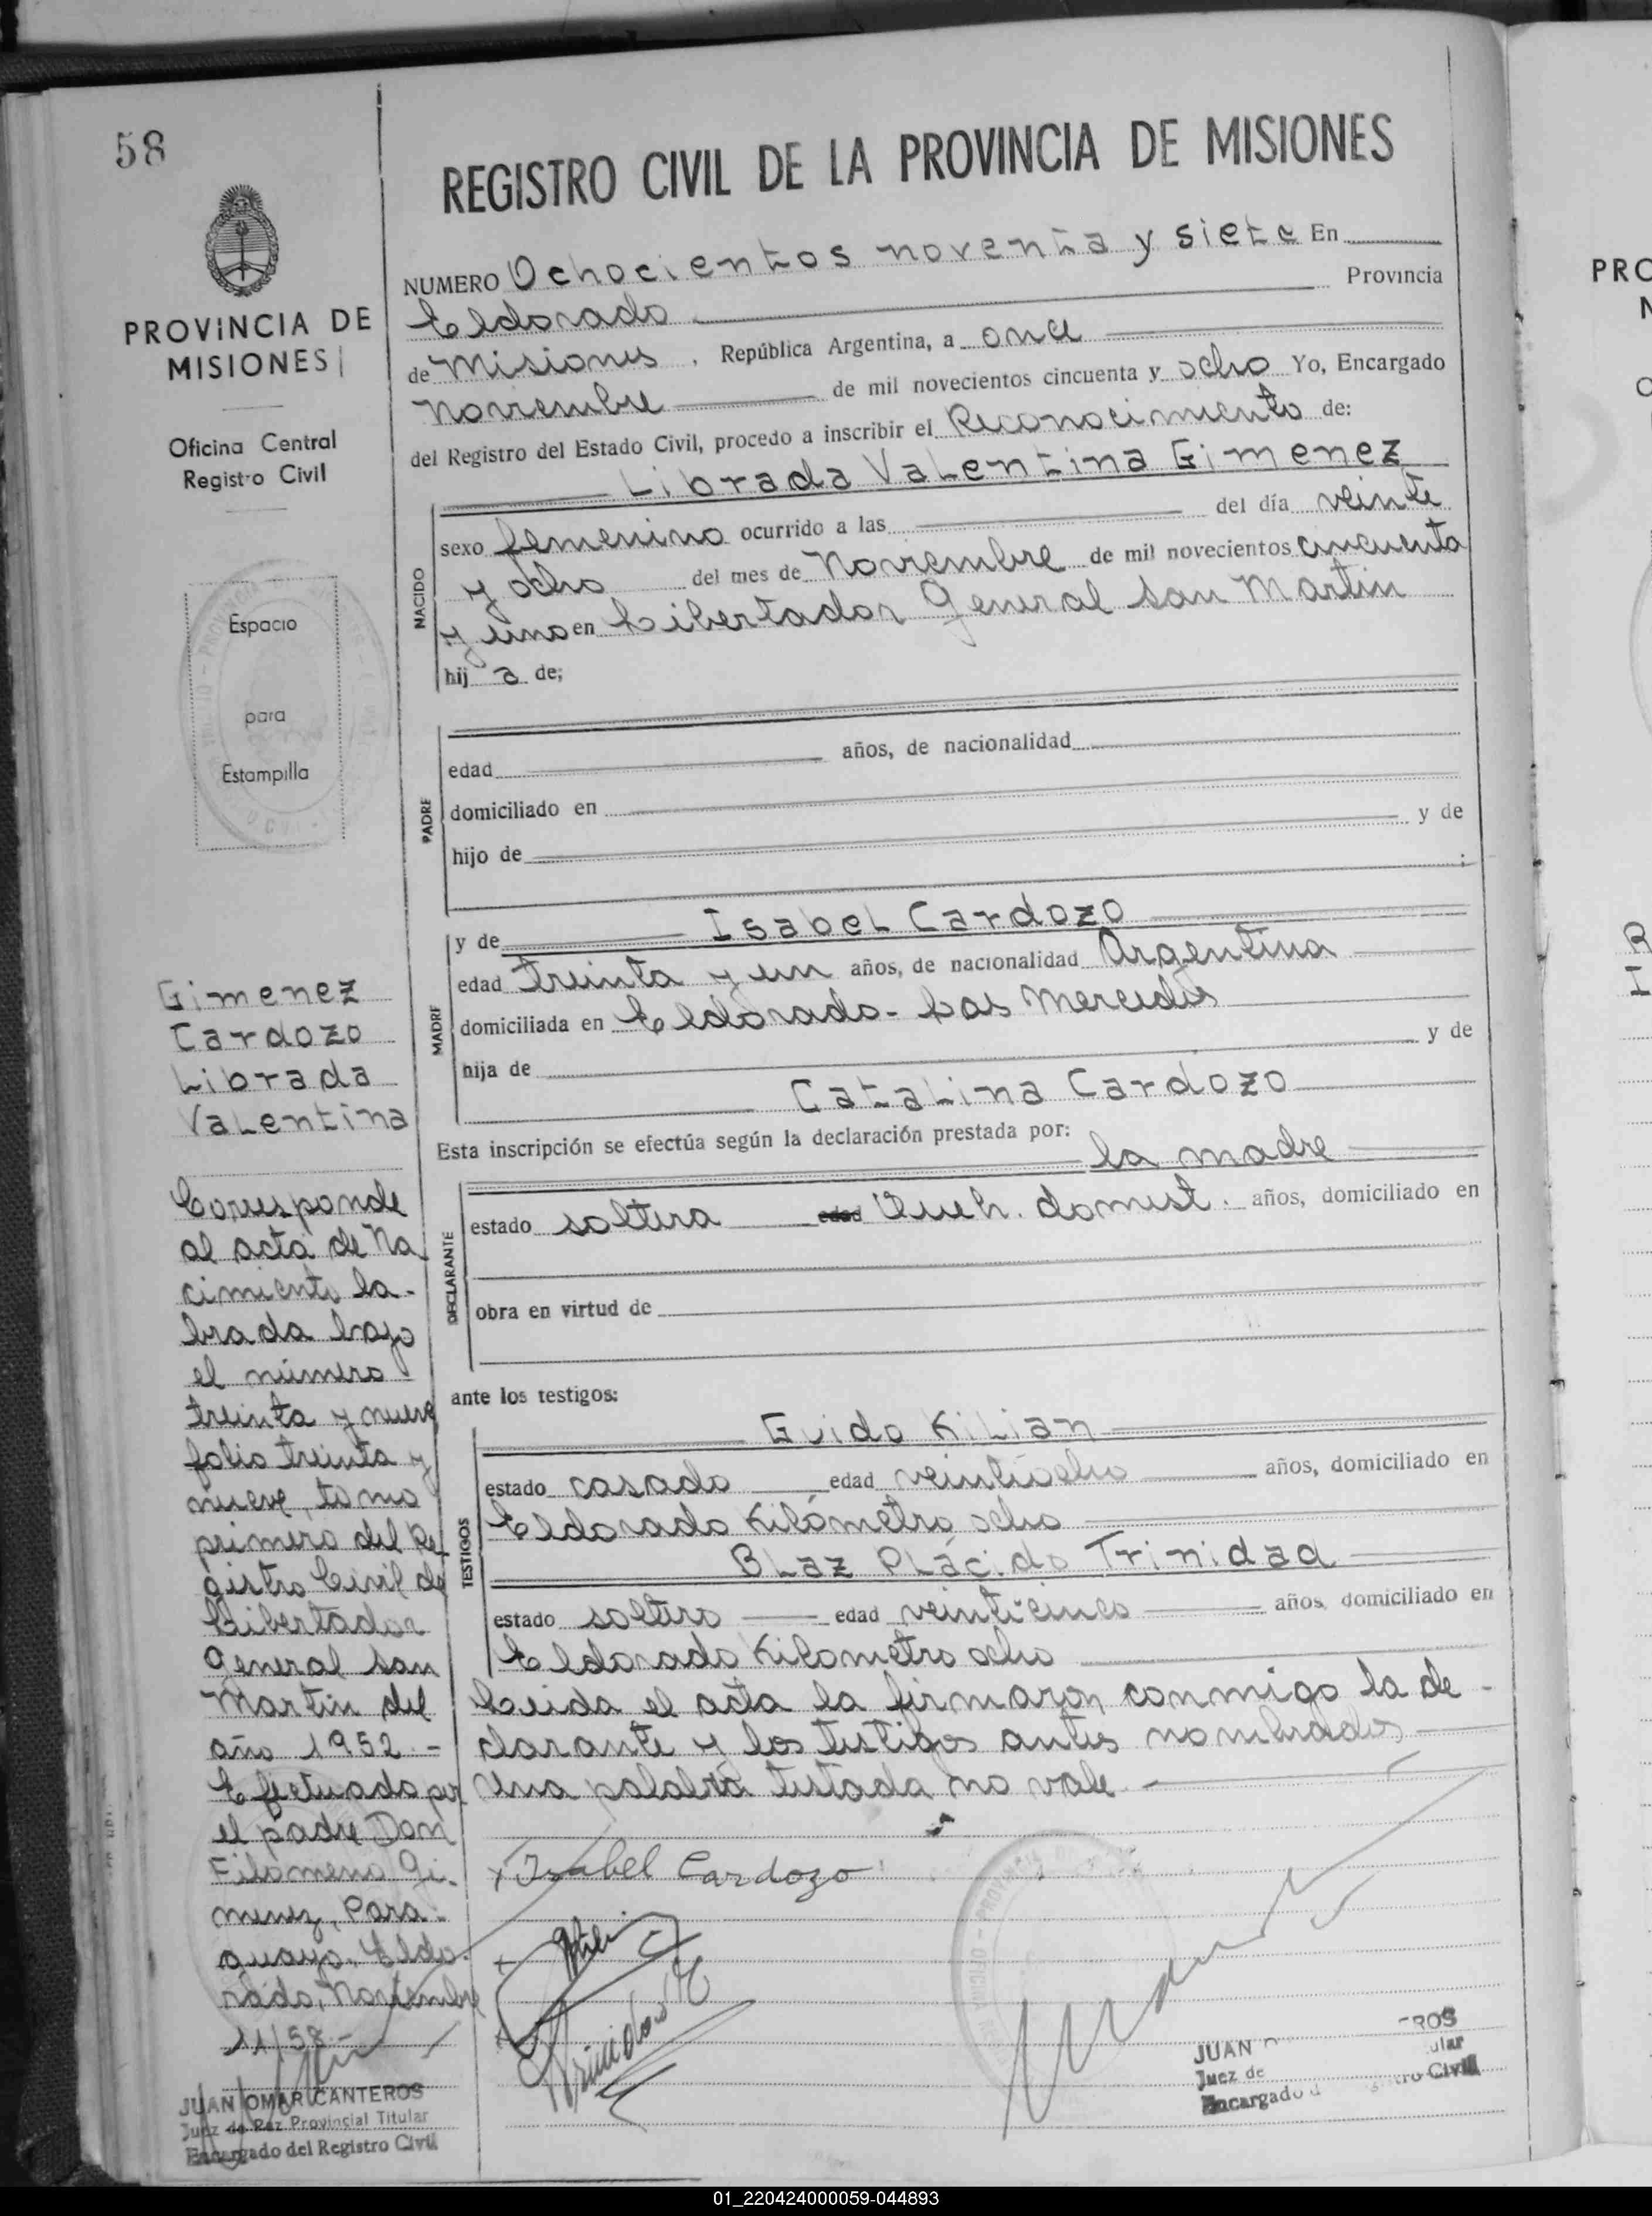 58
REGISTRO CIVIL DE LA PROVINCIA DE MISIONES
PROVINCIA DE
MISIONES
Oficina Central
Registro Civil
Espacio
para
Estampilla
NUMERO Ochocientos noventa y siete En
Eldorado Provincia
de Misiones, República Argentina, a once
Noviembre de mil novecientos cincuenta y ocho Yo, Encargado
del Registro del Estado Civil, procedo a inscribir el Reconocimiento de:
Librada Valentina Gimenez
NACIDO
sexo femenino ocurrido a las del día veinte
y ocho del mes de Noviembre de mil novecientos cincuenta
y uno en Libertador General San Martin
hij a de;
PADRE
edad años, de nacionalidad
domiciliado en
hijo de y de
;
MADRE
y de Isabel Cardozo
edad treinta y un años, de nacionalidad Argentina
domiciliada en Eldorado - Las Mercedes
hija de y de
Catalina Cardozo
Esta inscripción se efectúa según la declaración prestada por:
la madre
DECLARANTE
estado soltera edad Queh. domest. años, domiciliado en
obra en virtud de
ante los testigos:
TESTIGOS
Guido Kilian
estado casado edad veintiocho años, domiciliado en
Eldorado Kilómetro ocho
Blaz Plácido Trinidad
estado soltero edad veinticinco años, domiciliado en
Eldorado Kilometro ocho
Leida el acta la firmaron conmigo la de-
clarante y los testigos antes nombrados
Una palabra testada no vale
Isabel Cardozo
Gimenez
Cardozo
Librada
Valentina
Corresponde
al acta de Na
cimiento la-
brada bajo
el número
treinta y nueve
folio treinta y
nueve, tomo
primero del Re
gistro Civil de
Libertador
General San
Martin del
año 1952.-
Efectuado por
el padre Don
Filomeno Gi-
menez, Para-
guayo. Eldo-
rado, Noviembre
11/58.-
JUAN OMAR CANTEROS
Juez de Paz Provincial Titular
Encargado del Registro Civil
JUAN
Juez de
Encargado Civil
PRO
01_220424000059-044893